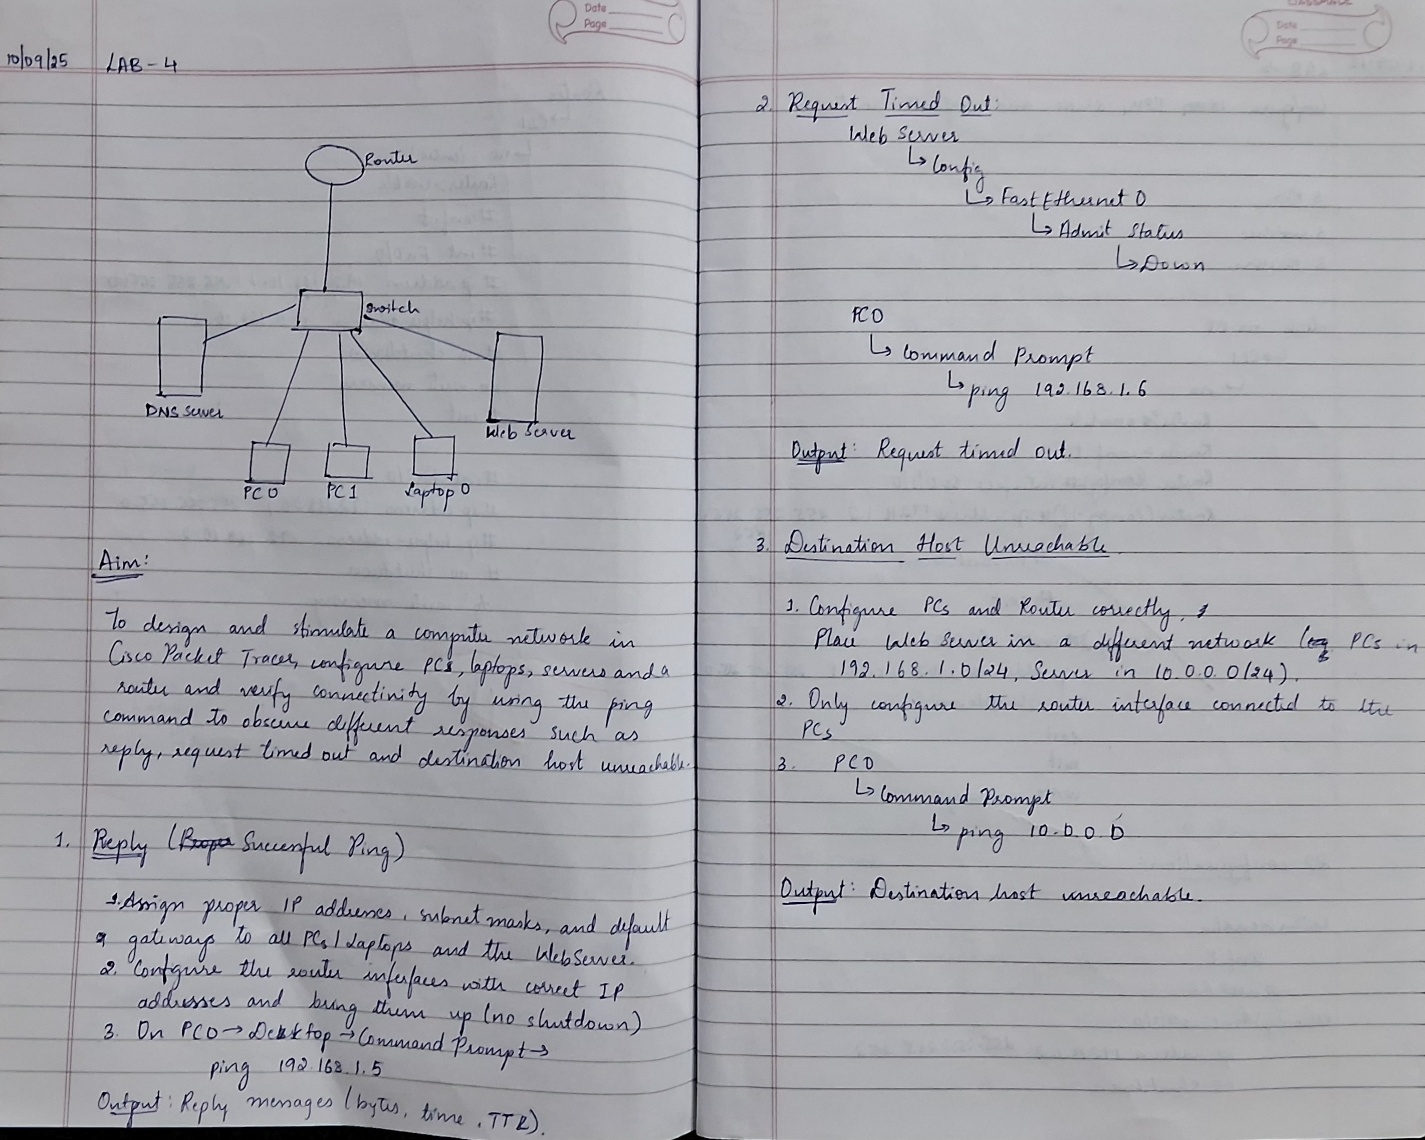 Date
Page
10/09/25 LAB-4
Router
Switch
DNS Server
Web Server
PC0 PC1 Laptop 0
Aim:
To design and stimulate a computer network in
Cisco Packet Tracer, configure PCs, laptops, servers and a
router and verify connectivity by using the ping
command to observe different responses such as
reply, request timed out and destination host unreachable.
1. Reply (Proper Successful Ping)
1. Assign proper IP addresses, subnet masks, and default
gateways to all PCs/Laptops and the WebServer.
2. Configure the router interfaces with correct IP
addresses and bring them up (no shutdown)
3. On PC0→Desktop→Command Prompt→
ping 192.168.1.5
Output: Reply messages (bytes, time, TTL).
Date
Page
2. Request Timed Out:
Web Server
↳ Config
↳ FastEthernet 0
↳ Admit Status
↳ Down
PC0
↳ Command Prompt
↳ ping 192.168.1.6
Output: Request timed out.
3. Destination Host Unreachable
1. Configure PCs and Router correctly,
Place Web Server in a different network (eg PCs in
192.168.1.0/24, Server in 10.0.0.0/24).
2. Only configure the router interface connected to the
PCs
3. PC0
↳ Command Prompt
↳ ping 10.0.0.0
Output: Destination host unreachable.